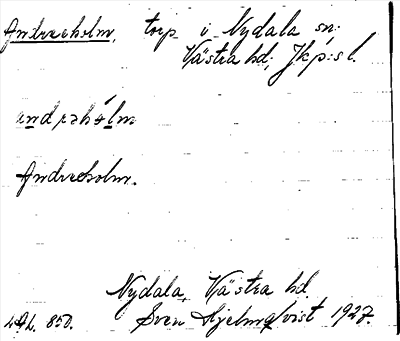 Andreeholm, torp i Nydala sn:
Västra hd; Jkp:s l.
andrəhólm
Andreeholm.
Nydala, Västra hd.
L.A.L. 850. Sven Hjelmqvist 1927.